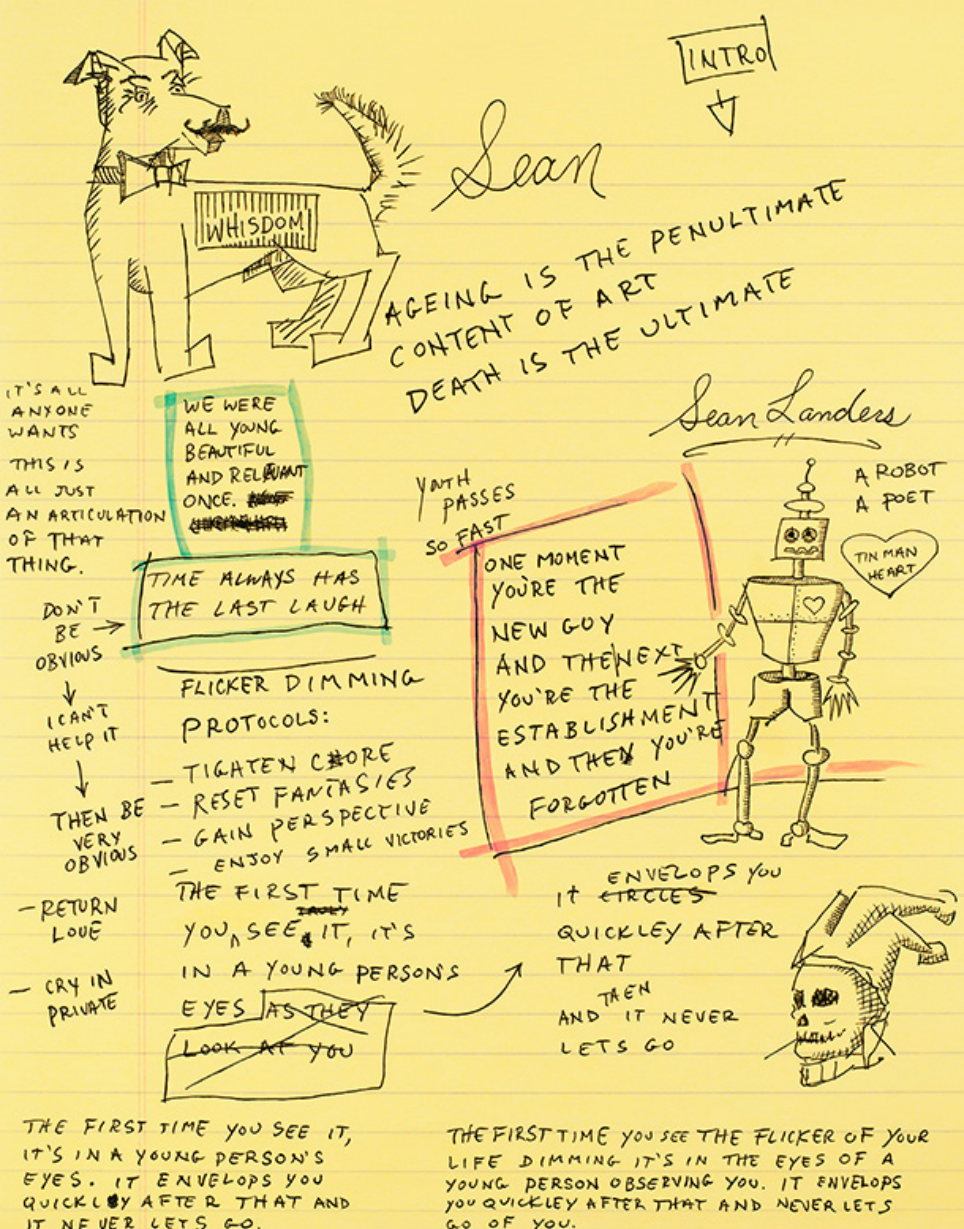 INTRO
Sean
WHISDOM
AGEING IS THE PENULTIMATE
CONTENT OF ART
DEATH IS THE ULTIMATE
IT'S ALL
ANYONE
WANTS
THIS IS
ALL JUST
AN ARTICULATION
OF THAT
THING.
WE WERE
ALL YOUNG
BEAUTIFUL
AND RELEVANT
ONCE.
TIME ALWAYS HAS
THE LAST LAUGH
DON'T
BE →
OBVIOUS
I CAN'T
HELP IT
THEN BE
VERY
OBVIOUS
FLICKER DIMMING
PROTOCOLS:
— TIGHTEN CORE
— RESET FANTASIES
— GAIN PERSPECTIVE
— ENJOY SMALL VICTORIES
— RETURN
LOVE
— CRY IN
PRIVATE
Sean Landers
A ROBOT
A POET
TIN MAN
HEART
YOUTH
PASSES
SO FAST
ONE MOMENT
YOU'RE THE
NEW GUY
AND THE NEXT
YOU'RE THE
ESTABLISHMENT
AND THEN YOU'RE
FORGOTTEN
THE FIRST TIME
YOU SEE IT, IT'S
IN A YOUNG PERSON'S
EYES AS THEY
LOOK AT YOU
ENVELOPS YOU
IT CIRCLES
QUICKLEY AFTER
THAT
THEN
AND IT NEVER
LETS GO
THE FIRST TIME YOU SEE IT,
IT'S IN A YOUNG PERSON'S
EYES. IT ENVELOPS YOU
QUICKLY AFTER THAT AND
IT NEVER LETS GO.
THE FIRST TIME YOU SEE THE FLICKER OF YOUR
LIFE DIMMING IT'S IN THE EYES OF A
YOUNG PERSON OBSERVING YOU. IT ENVELOPS
YOU QUICKLEY AFTER THAT AND NEVER LETS
GO OF YOU.